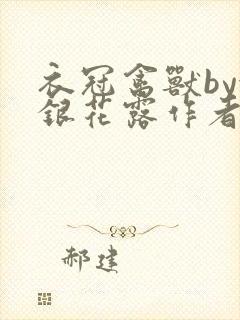 衣冠禽獸by
銀花露作者
郝建